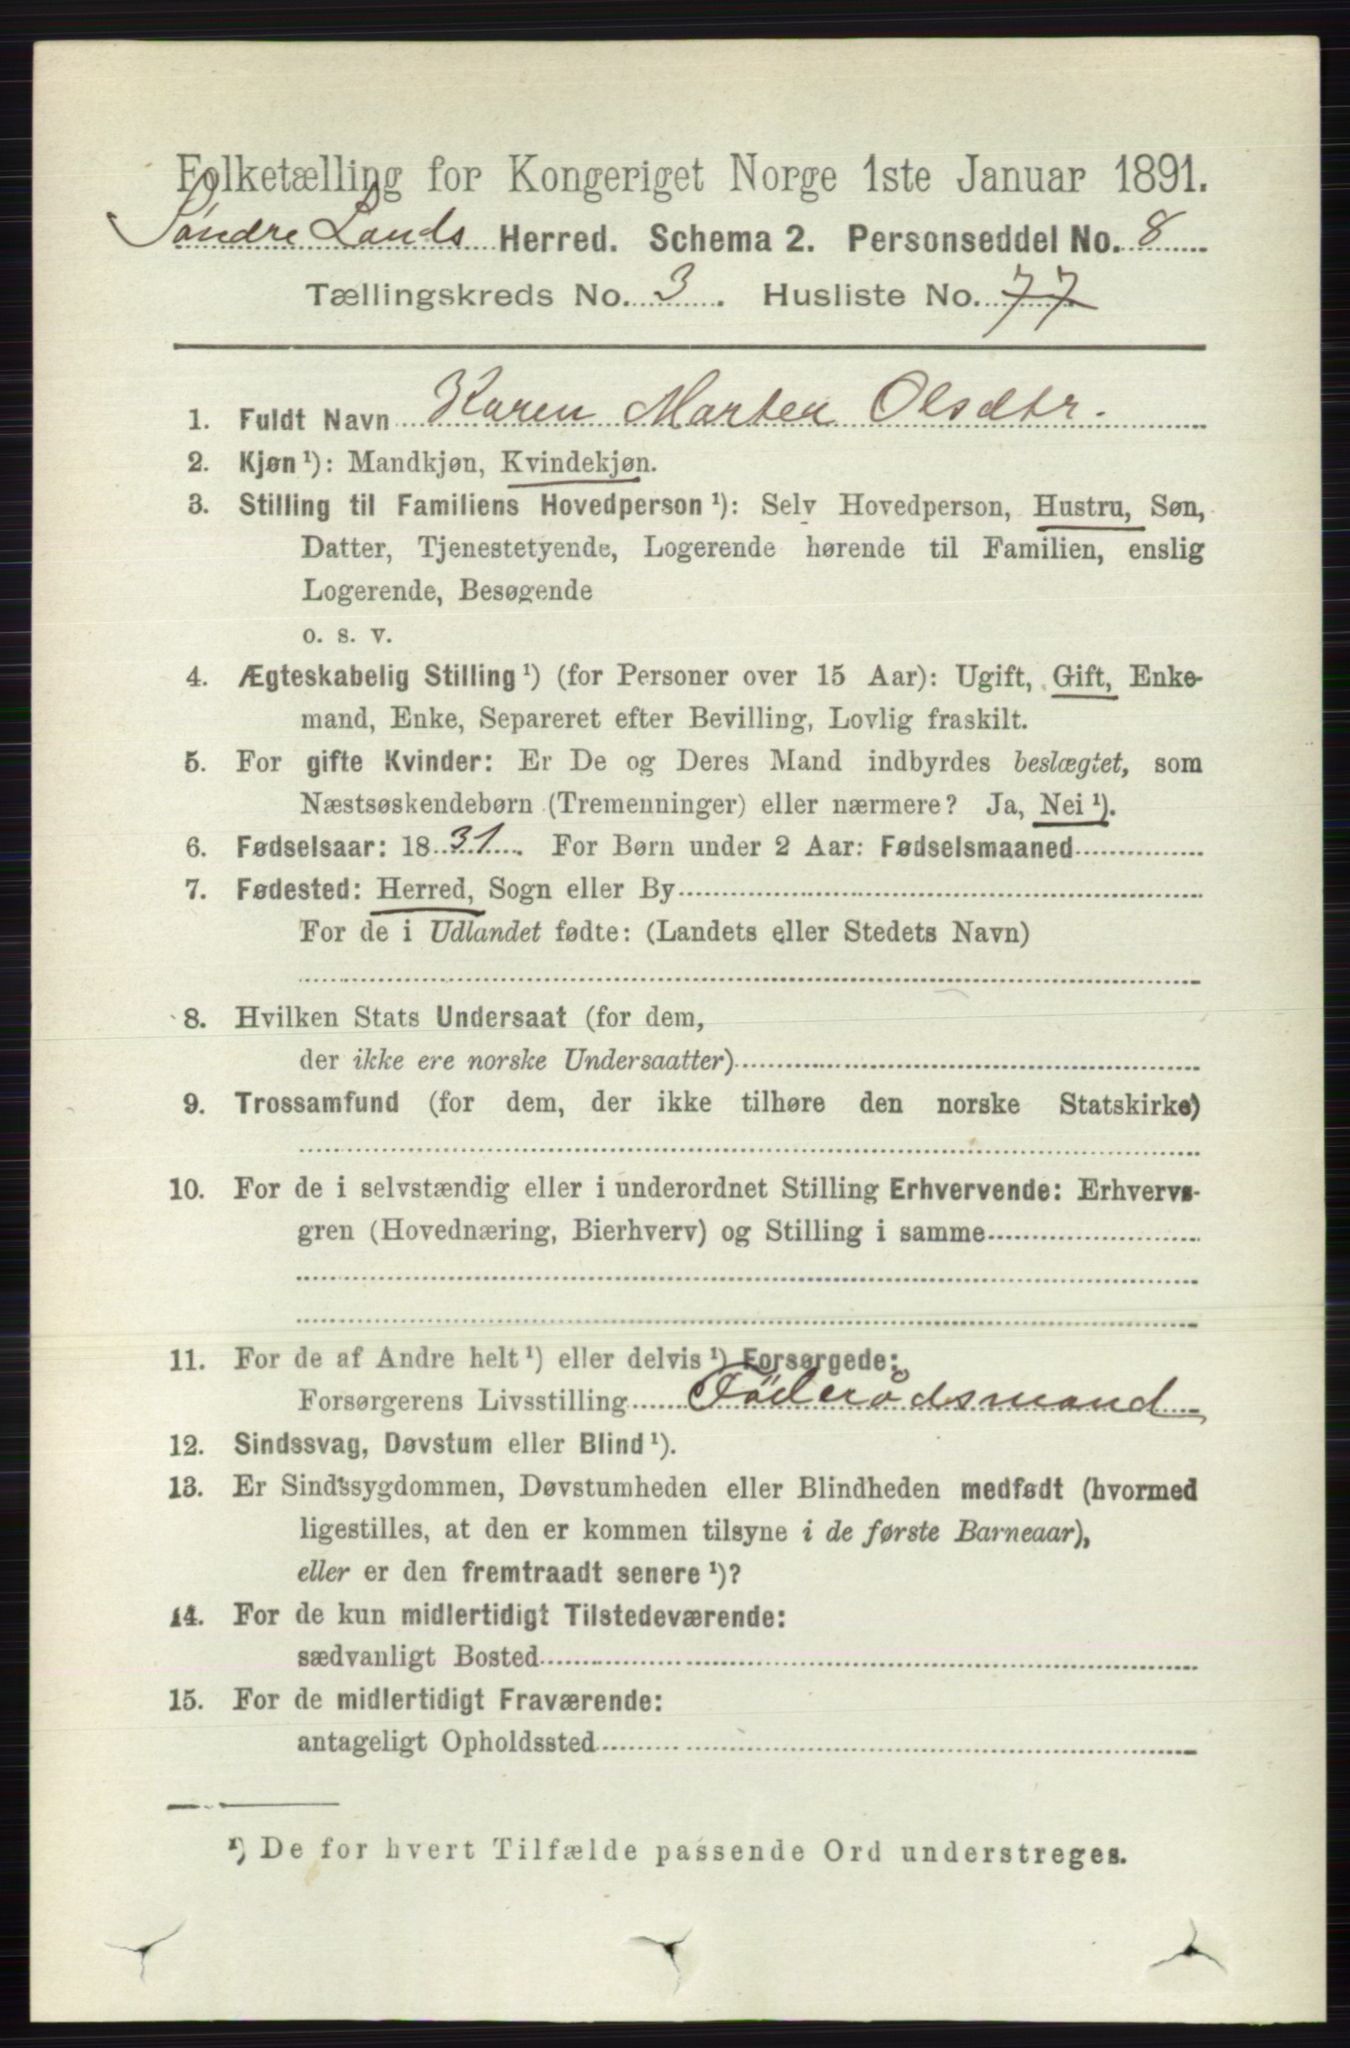 Folketælling for Kongeriget Norge 1ste Januar 1891.
Søndre Lands Herred. Schema 2. Personseddel No. 8
Tællingskreds No. 3. Husliste No. 77
1. Fuldt Navn Karen Marten Olsdtr.
2. Kjøn ¹): Mandkjøn, Kvindekjøn.
3. Stilling til Familiens Hovedperson ¹): Selv Hovedperson, Hustru, Søn,
Datter, Tjenestetyende, Logerende hørende til Familien, enslig
Logerende, Besøgende
o. s. v.
4. Ægteskabelig Stilling ¹) (for Personer over 15 Aar): Ugift, Gift, Enke-
mand, Enke, Separeret efter Bevilling, Lovlig fraskilt.
5. For gifte Kvinder: Er De og Deres Mand indbyrdes beslægtet, som
Næstsøskendebørn (Tremenninger) eller nærmere? Ja, Nei ¹).
6. Fødselsaar: 1831. For Børn under 2 Aar: Fødselsmaaned
7. Fødested: Herred, Sogn eller By
For de i Udlandet fødte: (Landets eller Stedets Navn)
8. Hvilken Stats Undersaat (for dem,
der ikke ere norske Undersaatter)
9. Trossamfund (for dem, der ikke tilhøre den norske Statskirke)
10. For de i selvstændig eller i underordnet Stilling Erhvervende: Erhvervs-
gren (Hovednæring, Bierhverv) og Stilling i samme
11. For de af Andre helt ¹) eller delvis ¹) Forsørgede:
Forsørgerens Livsstilling Föderådsmand
12. Sindssvag, Døvstum eller Blind ¹).
13. Er Sindssygdommen, Døvstumheden eller Blindheden medfødt (hvormed
ligestilles, at den er kommen tilsyne i de første Barneaar),
eller er den fremtraadt senere ¹)?
14. For de kun midlertidigt Tilstedeværende:
sædvanligt Bosted
15. For de midlertidigt Fraværende:
antageligt Opholdssted
¹) De for hvert Tilfælde passende Ord understreges.